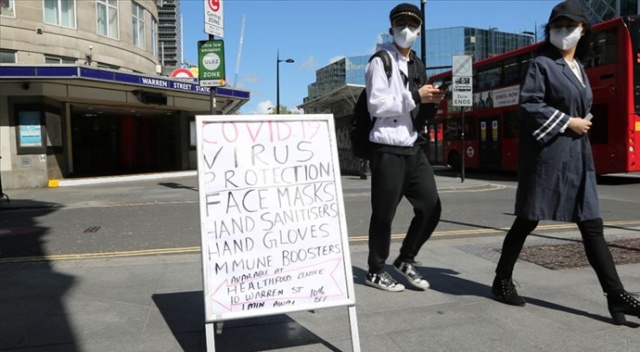 WARREN STREET STATION
Congestion
C
ZONE
ULEZ
ZONE
ENDS
COVID-19
VIRUS
PROTECTION
FACE MASKS
HAND SANITISERS
HAND GLOVES
IMMUNE BOOSTERS
AVAILABLE AT
HEALTHFOOD CENTRE
10 WARREN ST 10% OFF
1 MIN AWAY